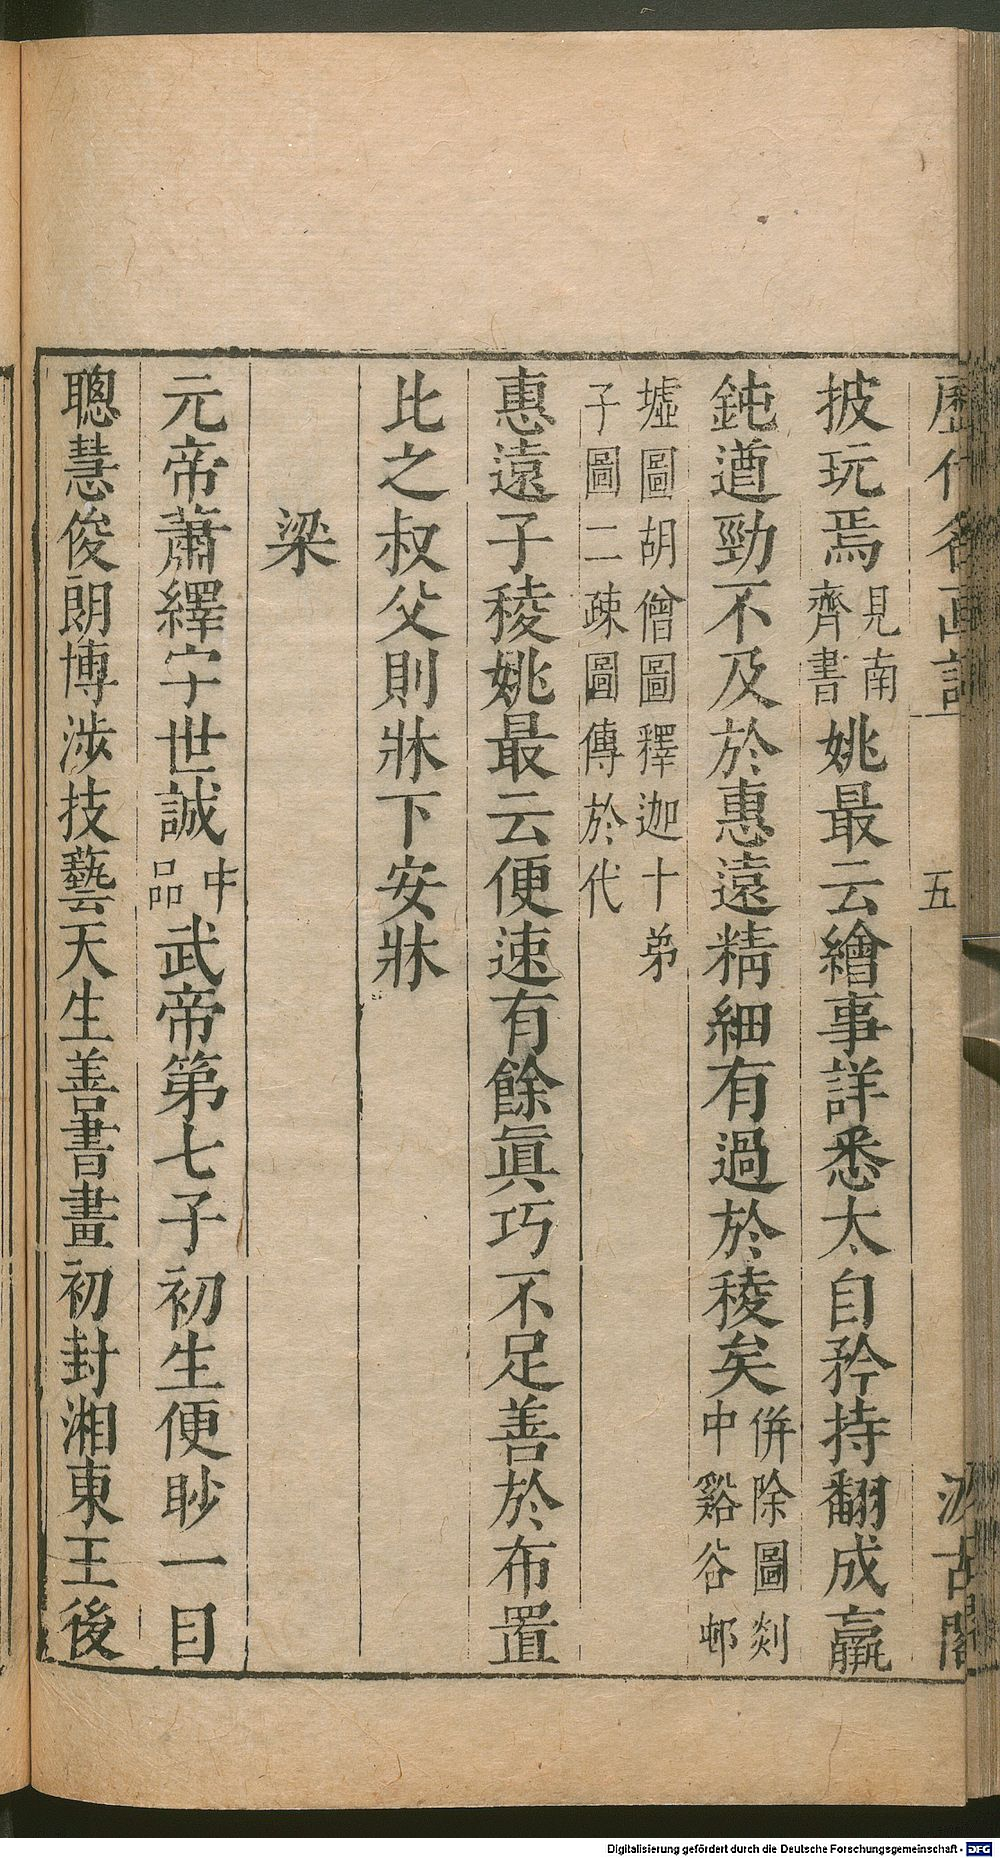 歷代名画記 五 汲古閣
披玩焉見南齊書姚最云繪事詳悉太自矜持翻成羸
鈍遒勁不及於惠遠精細有過於稜矣併除圖剡中谿谷邨
墟圖胡僧圖釋迦十弟子圖二疎圖傳於代
惠遠子稜姚最云便速有餘眞巧不足善於布置
比之叔父則牀下安牀
梁
元帝蕭繹字世誠中品武帝第七子初生便眇一目
聰慧俊朗博涉技藝天生善書畫初封湘東王後
Digitalisierung gefördert durch die Deutsche Forschungsgemeinschaft - DFG